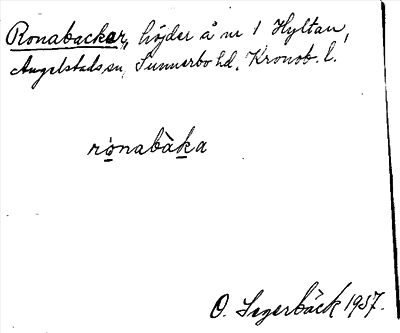 Ronabackar, höjder å nr 1 Hyltan,
Angelstads sn, Sunnerbo hd. Kronob. l.
ronabàka
O. Segerbäck 1937.